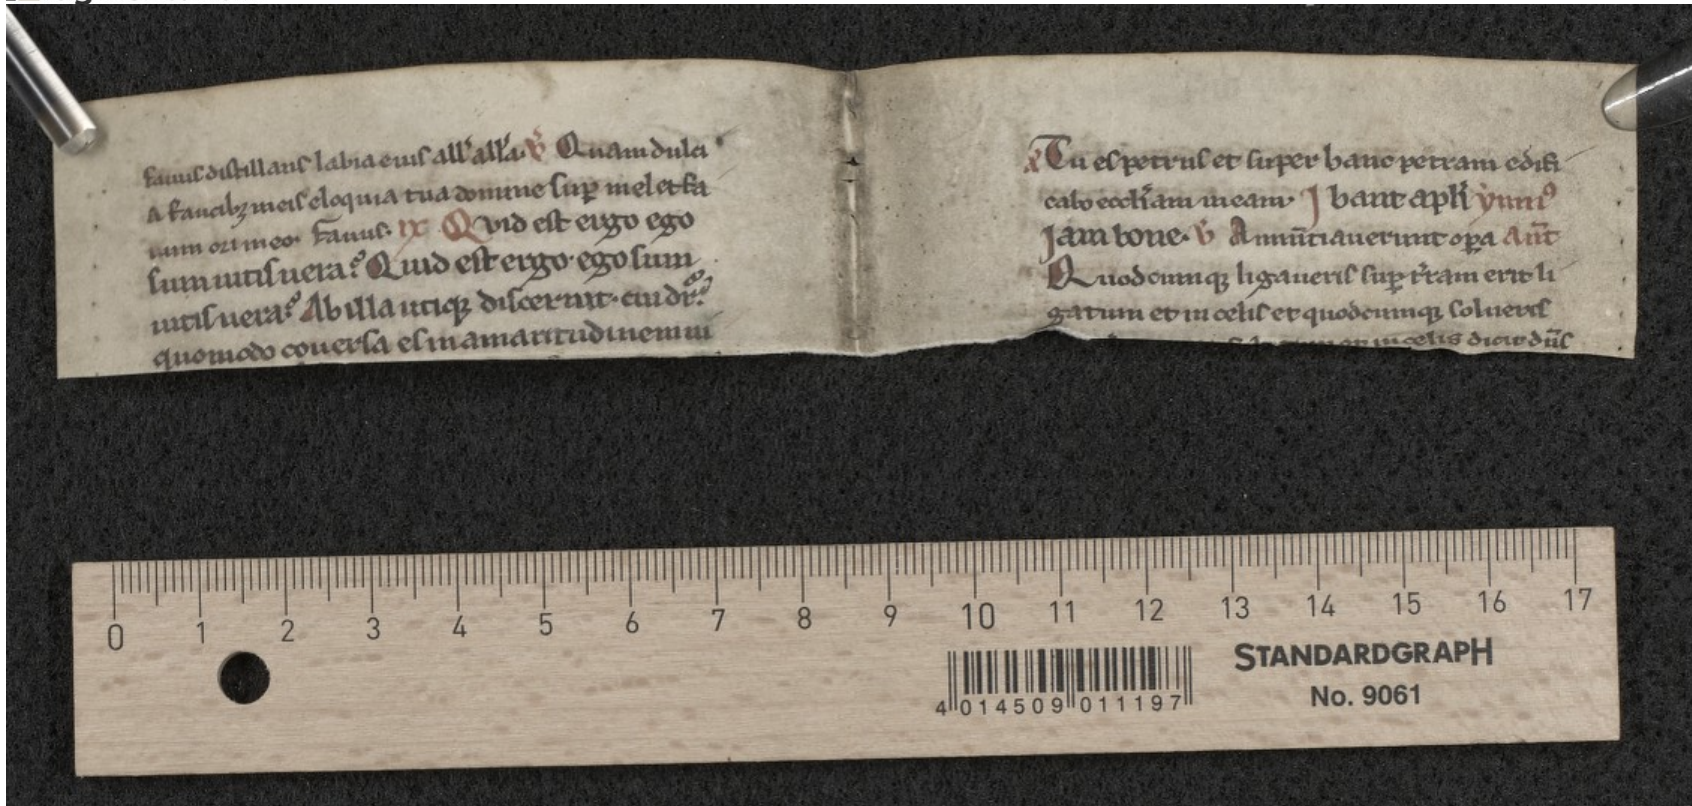 fauus distillans labia eius all'all'a. v̓ Quam dulci
a faucibꝫ meis eloquia tua domine sup̱ mel et fa
uum ori meo. Fauus. ix Quid est ergo ego
sum uitis uera? Quid est ergo· ego sum
uitis uera? Ab illa utiqꝫ discernit· cui dr̄?
quomodo cōuersa es in amaritudinem ui
Tu es petrus et super hanc petram edifi
cabo eccl'iam meam· Ibant apl'i ẏmn⁹
Iam bone· v̓ Annūtiauerunt oꝑa Añt
Quodcumqꝫ ligaueris sup̱ t'ram erit li
gatum et in celis et quodcumqꝫ solueris
in celis dicit dn̄s
0 1 2 3 4 5 6 7 8 9 10 11 12 13 14 15 16 17
STANDARDGRAPH
No. 9061
4 014509 011197